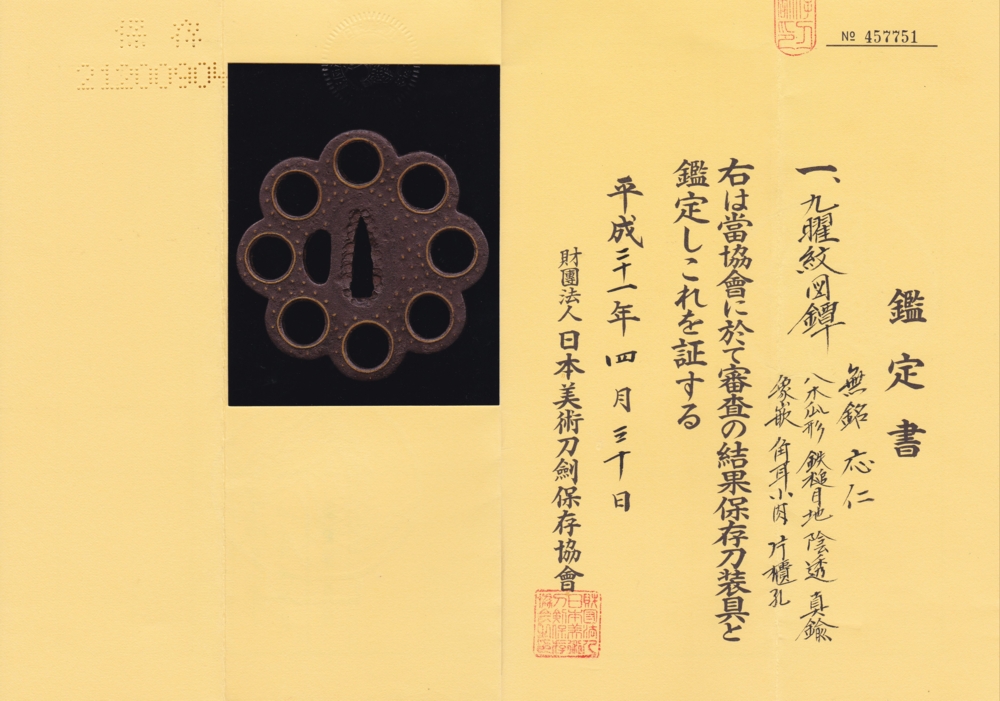 保存
21200904
№ 457751
鑑定書
一、九曜紋図鐔
無銘 応仁
八木瓜形 鉄槌目地 陰透 真鍮
象嵌 角耳小肉 片櫃孔
右は當協會に於て審査の結果保存刀装具と
鑑定しこれを証する
平成二十一年四月三十日
財團法人日本美術刀劍保存協會